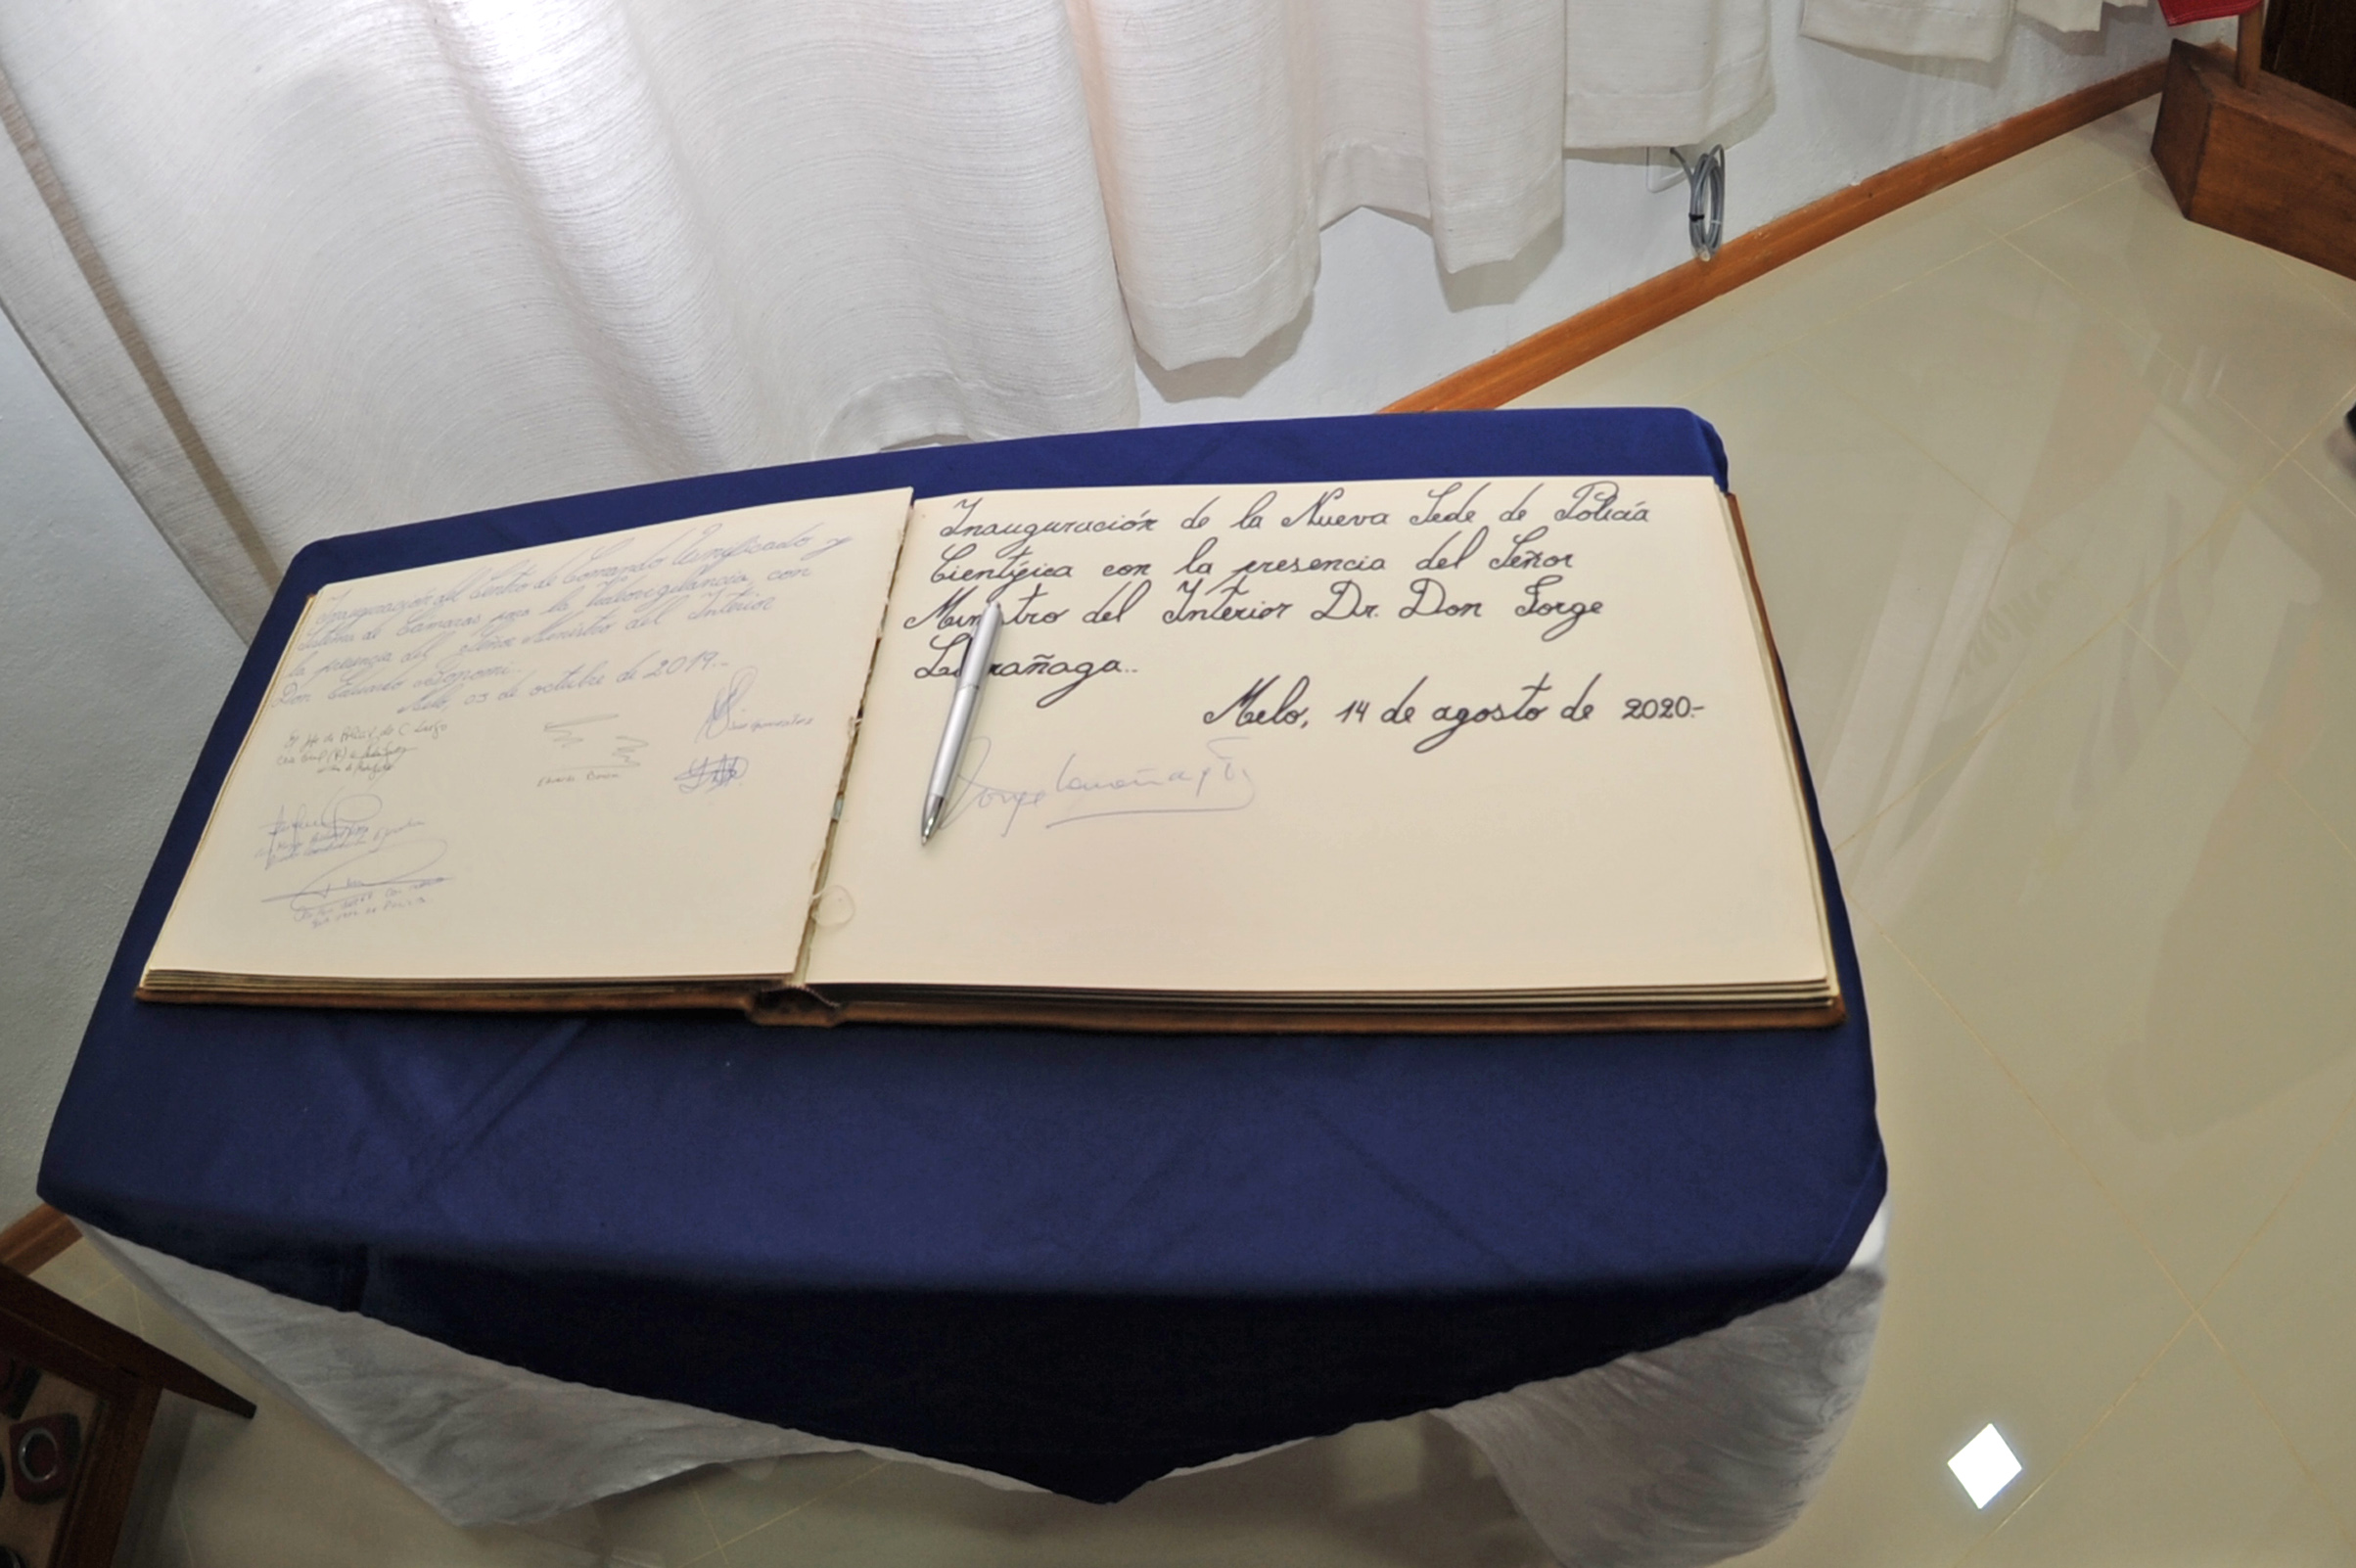 Inauguración del Centro de Comando Unificado y
Sistema de Cámaras para la Videovigilancia, con
la presencia del Señor Ministro del Interior
Don Eduardo Bonomi..
Melo, 03 de octubre de 2019..
Eduardo Bonomi
Inauguración de la Nueva Sede de Policía
Científica con la presencia del Señor
Ministro del Interior Dr. Don Jorge
Larrañaga..
Melo, 14 de agosto de 2020.-
Jorge Larrañaga